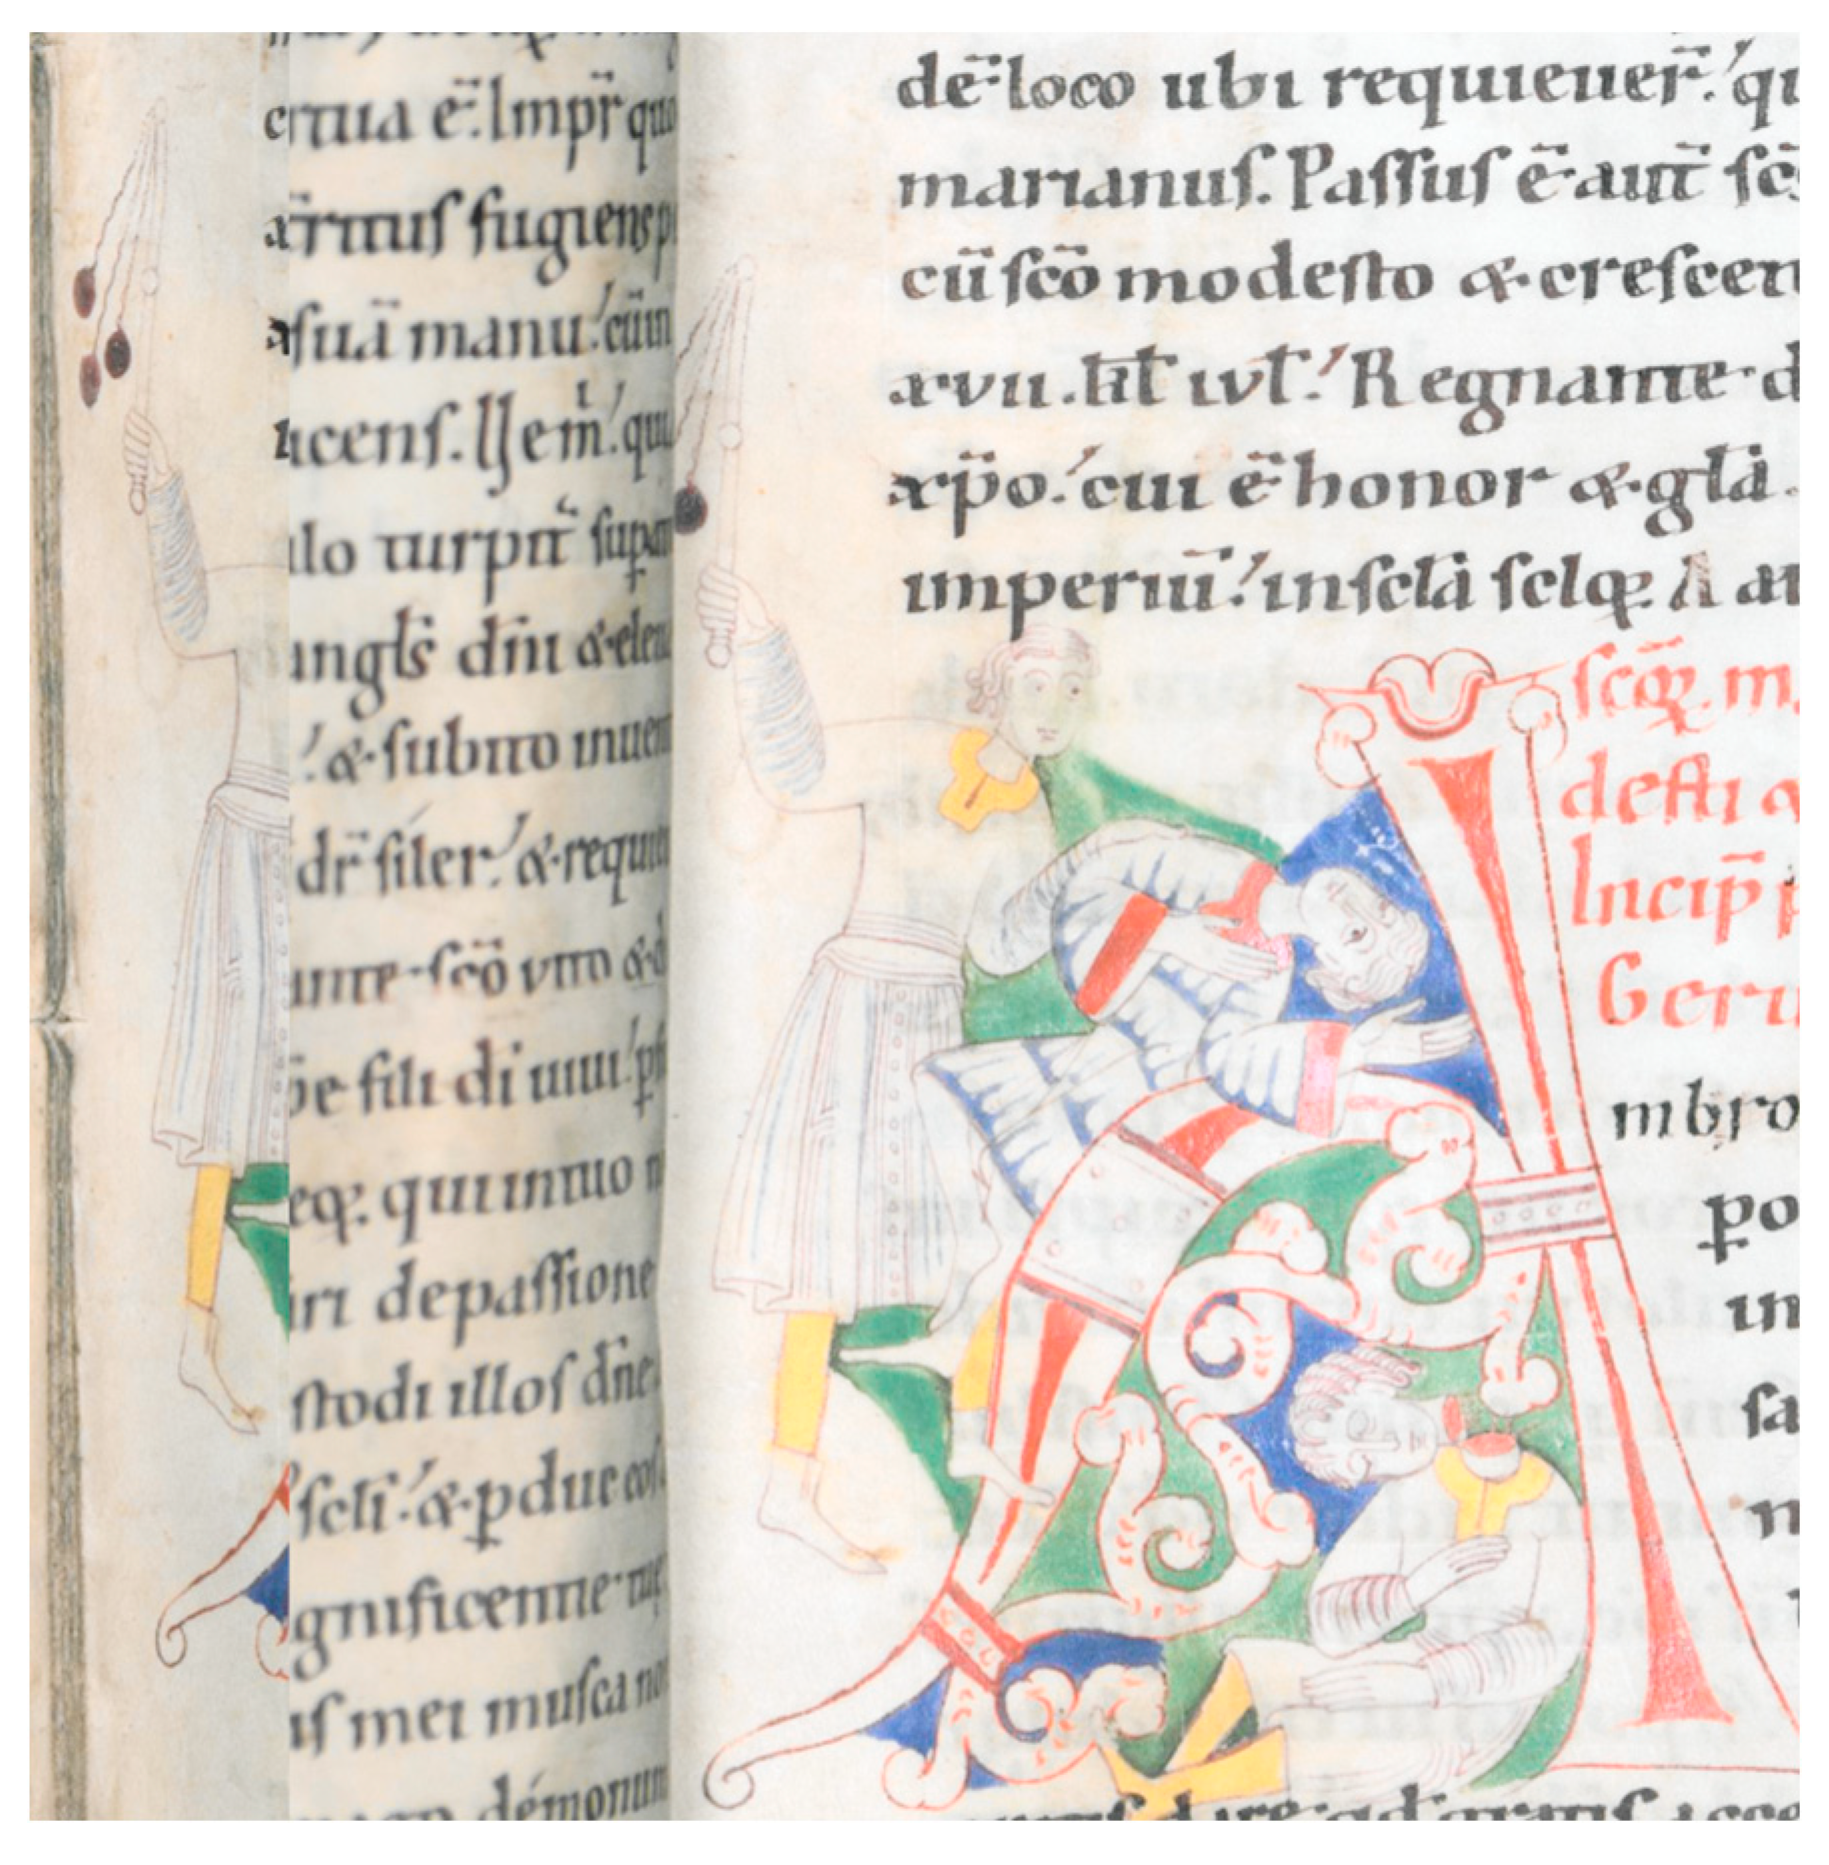 ertua ē. Imp̄r quo
artitus fugiens p
suā manu. cū in
icens. IJem̄. qui
lo turpit̄ supat
angl̄s dn̄i & eleu
& subito inuen
dr̄ siler. & requie
ante sc̄o uito & d
p̄e fili di uiui. p
eq. qui in tuo n
iri de passione
stodi illos dn̄e
scl̄i. & p̄due eos
gnificentie tue
is mei musca no
démonum
de loco ubi requieuer̄. qu
marianus. Passus ē aut̄ sc̄s
cū sc̄o modesto & crescen
xvii. kl̄ iul̄. Regnante d
xp̄o. cui ē honor & gl̄a.
imperiū. in scl̄a scl̄oꝝ. A
sc̄oꝝ. m
desti &
Incip̄ p
Geru
mbro
po
in
sa